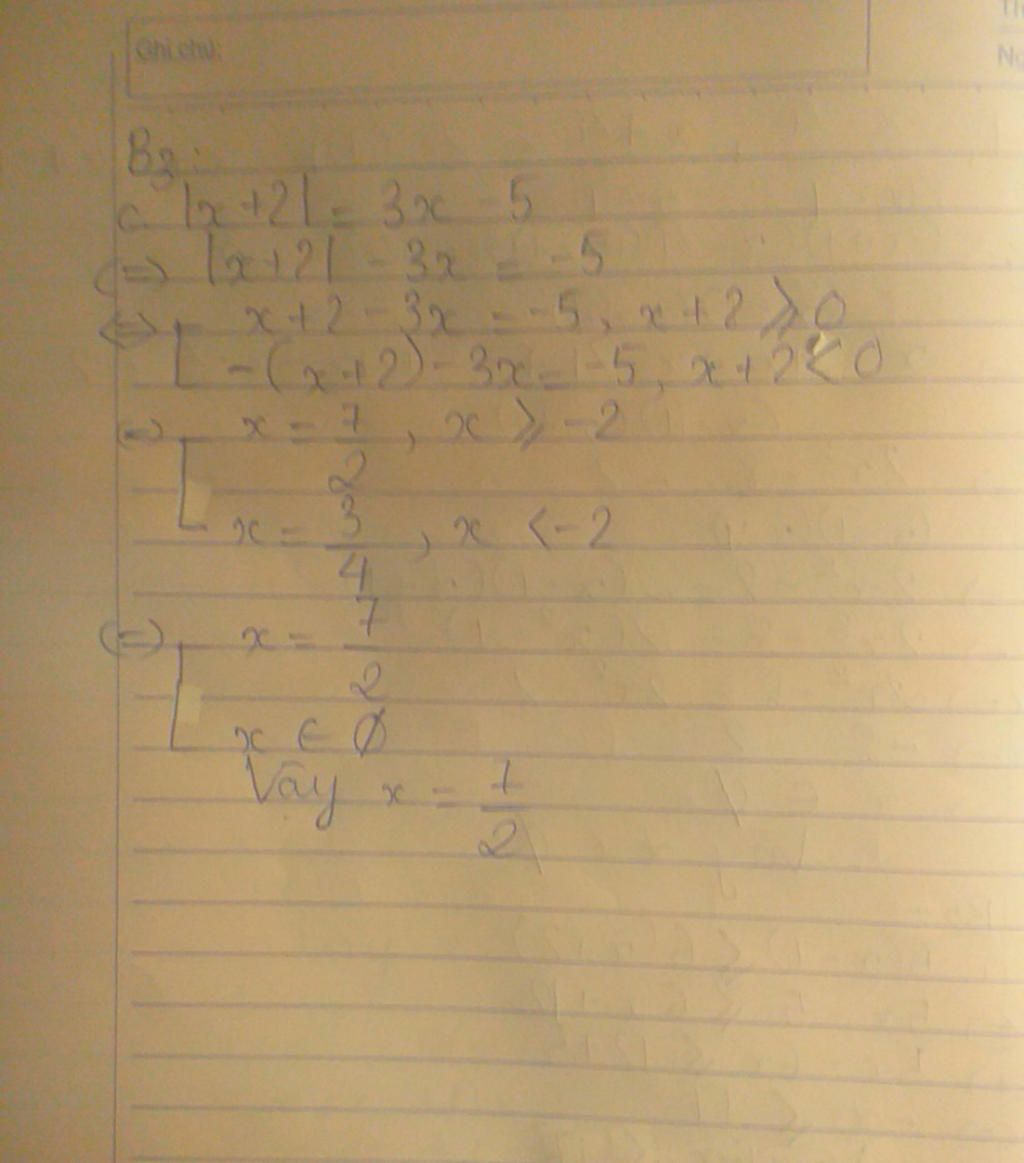 Ghi chú:
B3:
c. |x+2| = 3x - 5
(=) |x+2| - 3x = -5
(=) [ x+2 - 3x = -5, x+2 ⩾ 0
-(x+2) - 3x = -5, x+2 < 0
(=) [ x = 7/2, x ⩾ -2
x = 3/4, x < -2
(=) [ x = 7/2
x ∈ ∅
Vậy x = 7/2